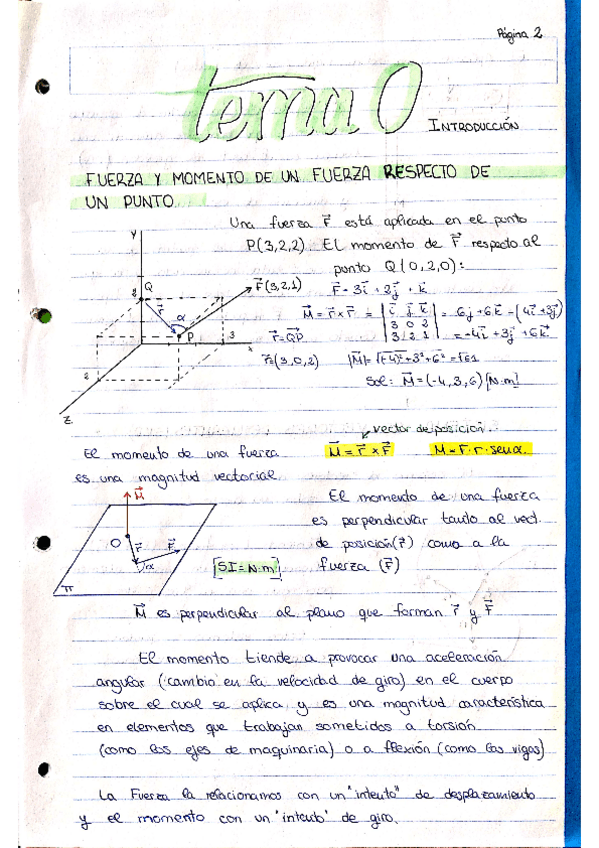 Página 2
tema 0
INTRODUCCIÓN
FUERZA Y MOMENTO DE UN FUERZA RESPECTO DE
UN PUNTO.
Una fuerza F⃗ está aplicada en el punto
P(3,2,2). El momento de F⃗ respecto al
punto Q(0,2,0):
y
2 Q
F⃗(3,2,1)
r⃗
α
P
3
x
2
z
r⃗=QP⃗
r⃗=(3,0,2)
F⃗=3i⃗+2j⃗+k⃗
M⃗=r⃗×F⃗ = |i⃗ j⃗ k⃗| = 6j+6k⃗-(4i⃗+3j⃗)
|3 0 2| = -4i⃗+3j⃗+6k⃗
|3 2 1|
|M⃗|=√(-4)²+3²+6²=√61
Sol: M⃗=(-4,3,6)[N·m]
vector de posición.
El momento de una fuerza
es una magnitud vectorial.
M⃗=r⃗×F⃗
M=F·r·senα.
M⃗
O
r⃗
F⃗
α
π
[SI=N·m]
El momento de una fuerza
es perpendicular tanto al vect.
de posición(r⃗) como a la
fuerza (F⃗)
M⃗ es perpendicular al plano que forman r⃗ y F⃗
El momento tiende a provocar una aceleración
angular (cambio en la velocidad de giro) en el cuerpo
sobre el cual se aplica y es una magnitud característica
en elementos que trabajan sometidos a torsión
(como los ejes de maquinaria) o a flexión (como las vigas)
La Fuerza la relacionamos con un "intento" de desplazamiento
y el momento con un "intento" de giro.